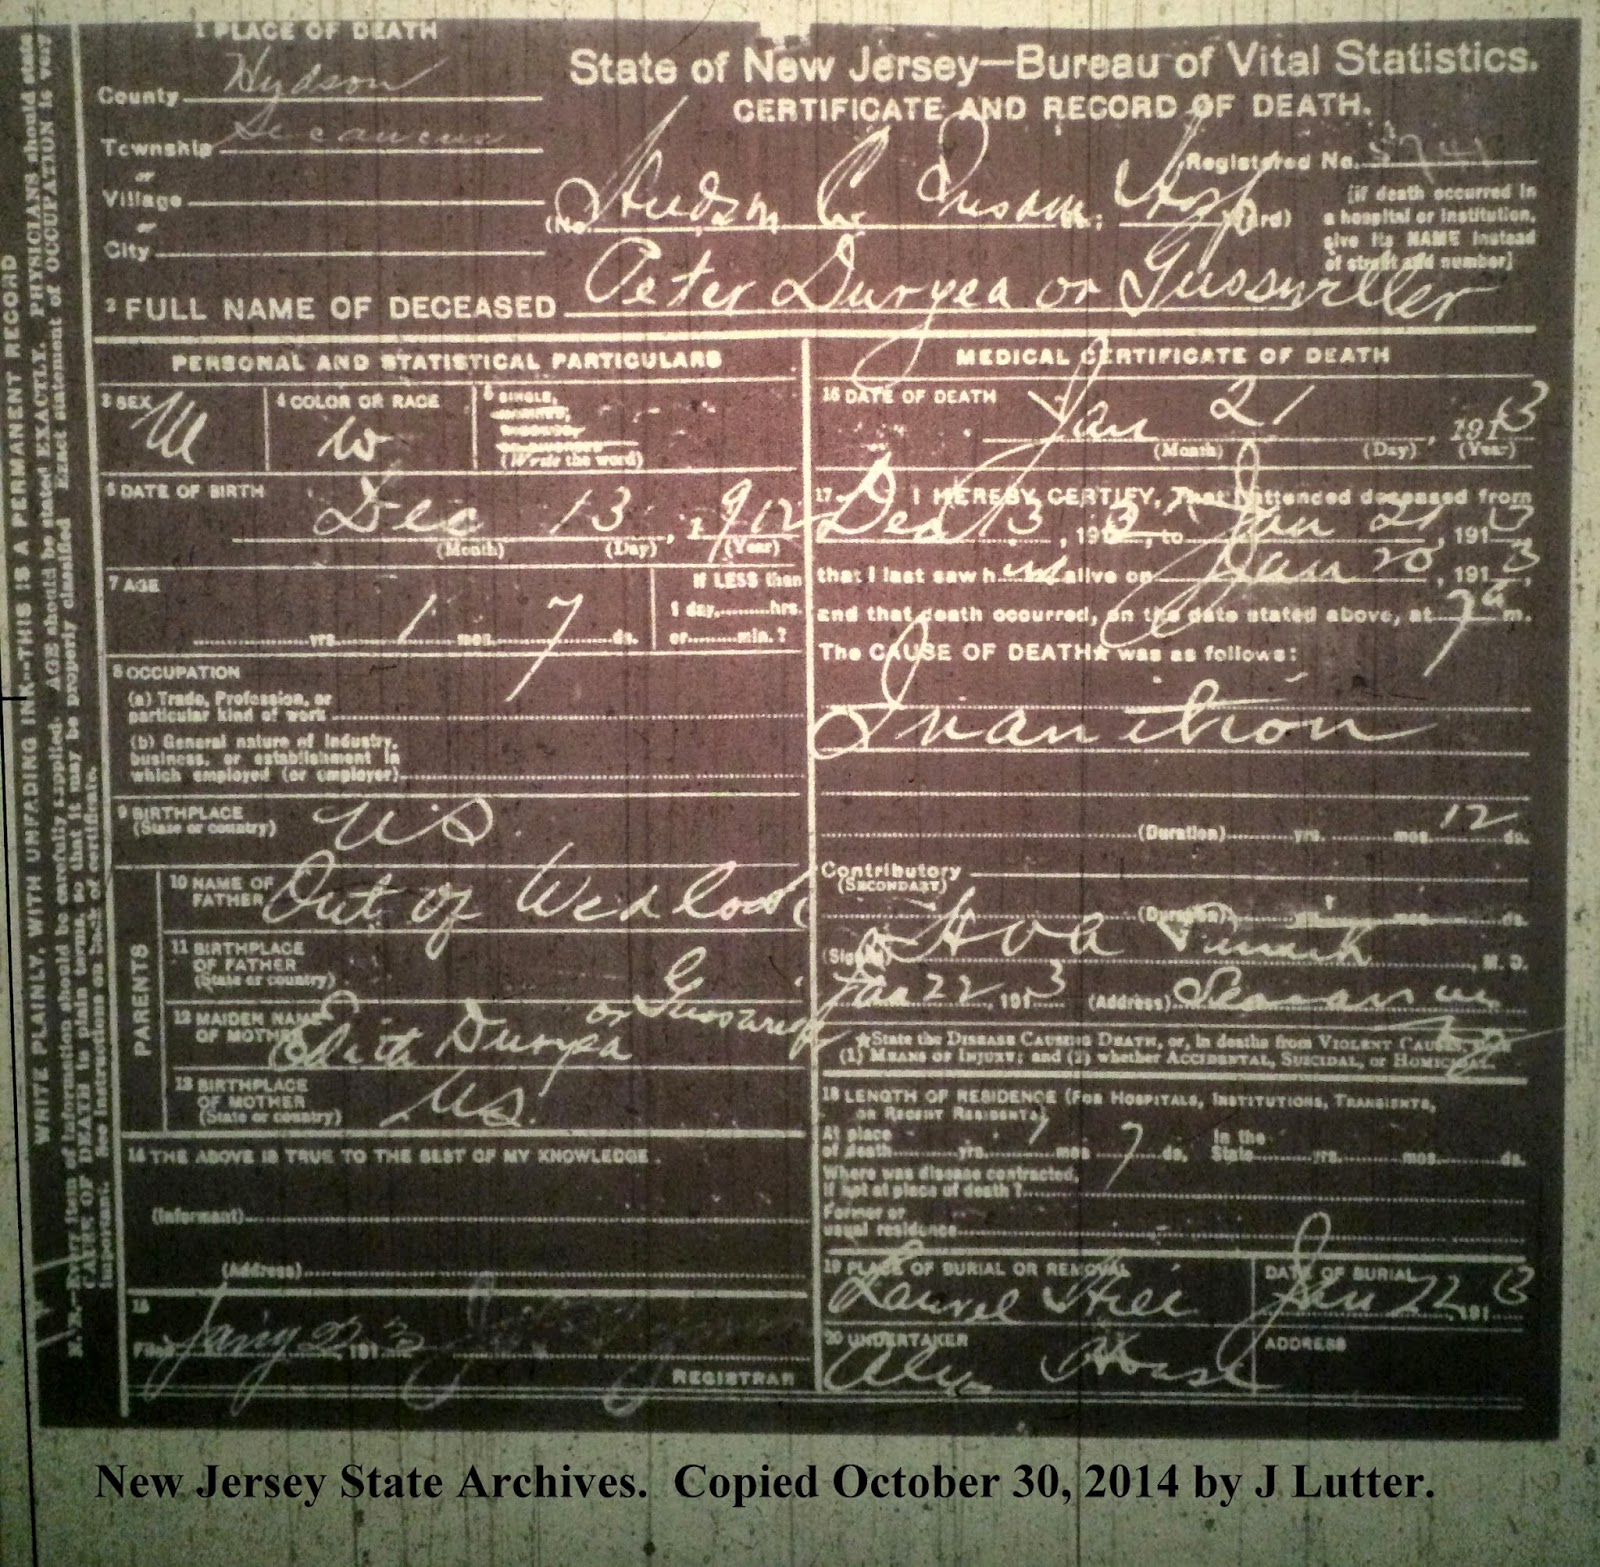 WRITE PLAINLY, WITH UNFADING INK—THIS IS A PERMANENT RECORD
N. B.—Every item of information should be carefully supplied. AGE should be stated EXACTLY. PHYSICIANS should state
CAUSE OF DEATH in plain terms, so that it may be properly classified. Exact statement of OCCUPATION is very
important. See instructions on back of certificate.
1 PLACE OF DEATH
County Hudson
Township Secaucus
or
Village
or
City
State of New Jersey—Bureau of Vital Statistics.
CERTIFICATE AND RECORD OF DEATH.
Registered No.
(No. Hudson C. Hosp Ward)
[if death occurred in
a hospital or institution,
give its NAME instead
of street and number]
2 FULL NAME OF DECEASED Peter Duryea or
PERSONAL AND STATISTICAL PARTICULARS
3 SEX M
4 COLOR OR RACE W
5 SINGLE,
(Write the word)
6 DATE OF BIRTH Dec 13, 1912
(Month) (Day) (Year)
7 AGE
yrs. 1 mos. 7 ds.
If LESS than
1 day, hrs.
or min.?
8 OCCUPATION
(a) Trade, Profession, or
particular kind of work
(b) General nature of Industry,
business, or establishment in
which employed (or employer)
9 BIRTHPLACE
(State or country) US
PARENTS
10 NAME OF
FATHER Out of Wedlock
11 BIRTHPLACE
OF FATHER
(State or country)
12 MAIDEN NAME
OF MOTHER Edith Duryea or
13 BIRTHPLACE
OF MOTHER
(State or country) US.
14 THE ABOVE IS TRUE TO THE BEST OF MY KNOWLEDGE.
(Informant)
(Address)
15
Filed Jany 23, 1913
REGISTRAR
MEDICAL CERTIFICATE OF DEATH
16 DATE OF DEATH
Jan 21, 1913
(Month) (Day) (Year)
17 I HEREBY CERTIFY, That I attended deceased from
Dec 13, 191 to Jan 21, 1913
that I last saw him alive on Jan 20, 1913,
and that death occurred, on the date stated above, at 7 a m.
The CAUSE OF DEATH★ was as follows:
Inanition
(Duration) yrs. mos. 12 ds.
Contributory
(SECONDARY)
(Duration) yrs. mos. ds.
(Signed) , M. D.
Jan 22, 1913 (Address) Secaucus
★State the DISEASE CAUSING DEATH, or, in deaths from VIOLENT CAUSES, state
(1) MEANS OF INJURY; and (2) whether ACCIDENTAL, SUICIDAL, or HOMICIDAL.
18 LENGTH OF RESIDENCE (FOR HOSPITALS, INSTITUTIONS, TRANSIENTS,
OR RECENT RESIDENTS)
At place
of death yrs. 1 mos 7 ds.
In the
State yrs. mos. ds.
Where was disease contracted,
if not at place of death?
Former or
usual residence
19 PLACE OF BURIAL OR REMOVAL
Laurel Hill
DATE OF BURIAL
Jan 22, 1913
20 UNDERTAKER
ADDRESS
New Jersey State Archives. Copied October 30, 2014 by J Lutter.